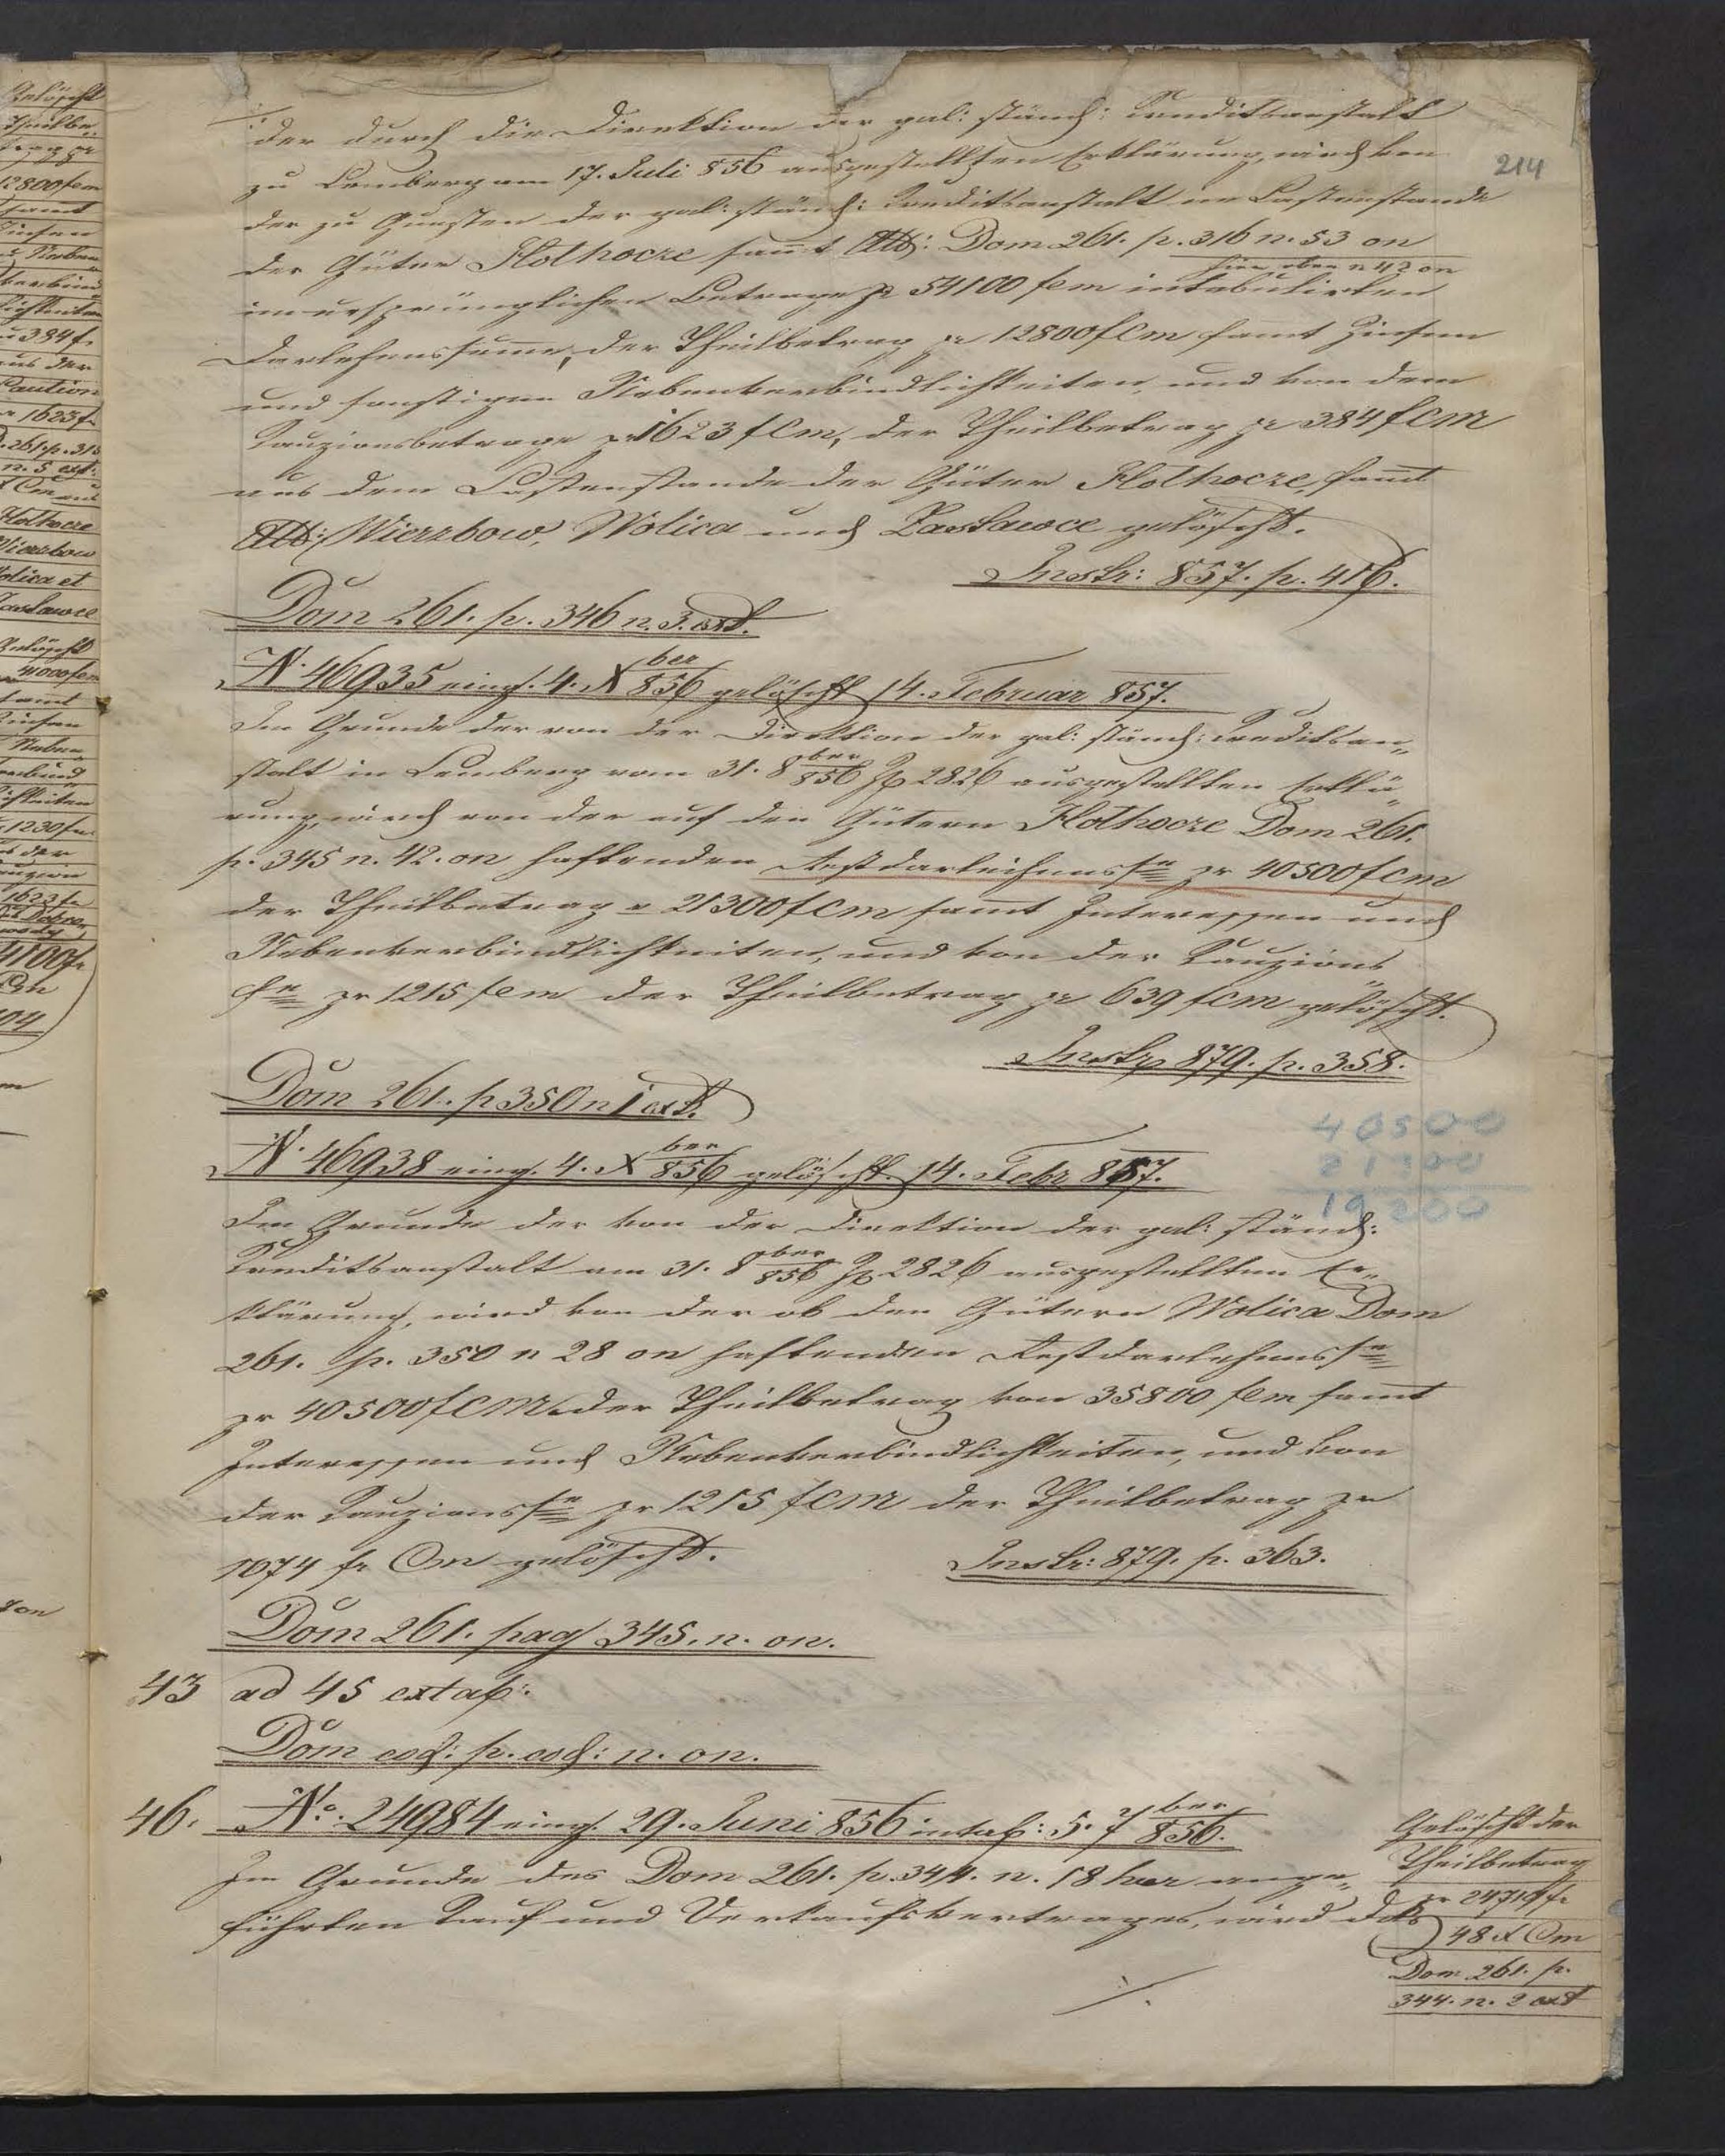 214
der durch die Direktion der gal: ständ: Kreditsanstalt
zu Lemberg am 17. Juli 856 ausgestellten Erklärung, wird von
der zu Gunsten der gal: ständ: Kreditsanstalt im Lastenstande
der Güter Płothocze sam̄t Att: Dom 261. p. 316 n. 53 on
hier oben n 42 on
im ursprünglichen Betrage pr 54100 fcm intabulirten
Darlehenssum̄e, der Theilbetrag pr 12800 fCm samt Zinsen
und sonstigen Nebenverbindlichkeiten, und von dem
Kauzionsbetrage pr 1623 fCm, der Theilbetrag pr 384 fCM
aus dem Lastenstande der Güter Płothocze, sam̄t
Att: Wierzbow, Wolica und Zasławce gelöscht.
Instr: 857. p. 416.
Dom 261. p. 346 n. 3. ext.
N. 46935 eing. 4. Xber 856 gelöscht 14. Februar 857.
Im Grunde der von der Direktion der gal: ständ: Kreditsan„
stalt in Lemberg vom 31. 8ber 856 Zp 2826 ausgestellten Erklä„
rung, wird von der auf den Gütern Płothocze Dom 261.
p. 345 n. 42. on haftenden Restdarleihensse pr 40500 fcm
der Theilbetrag pr 21300 fCm sam̄t Interessen und
Nebenverbindlichkeiten, und von der Kauzions
se pr 1215 fcm der Theilbetrag pr 639 fCm gelöscht.
Instr 879. p. 358.
Dom 261. p 350 n 1 ext.
N. 46938 eing. 4. Xber 856 gelöscht. 14. Febr 857.
40500
21300
19200
Im Grunde der von der Direktion der gal: ständ:
Kreditsanstalt am 31. 8ber 856 Zp 2826 ausgestellten Er„
klärung, wird von der ob den Gütern Wolica Dom
261. p. 350 n 28 on haftenden Restdarlehensse
pr 40500 fCM der Theilbetrag von 35800 fcm sam̄t
Interessen und Nebenverbindlichkeiten, und von
der Kauzionsse pr 1215 fCM der Theilbetrag pr
1074 fr Cm gelöscht.
Instr: 879. p. 363.
Dom 261. pag 345. n. on.
43 ad 45 extab:
Dom eod: p. eod: n. on.
46. No. 24984 eing. 29. Juni 856 intab: 5. 7ber 856.
Im Grunde des Dom 261. p. 344. n. 18 haer ange„
führten Kauf und Verkaufsvertrages, wird das
Gelöscht der
Theilbetrag
pr 24719 fr
48 x Cm
Dom 261. p.
344. n. 2 ext